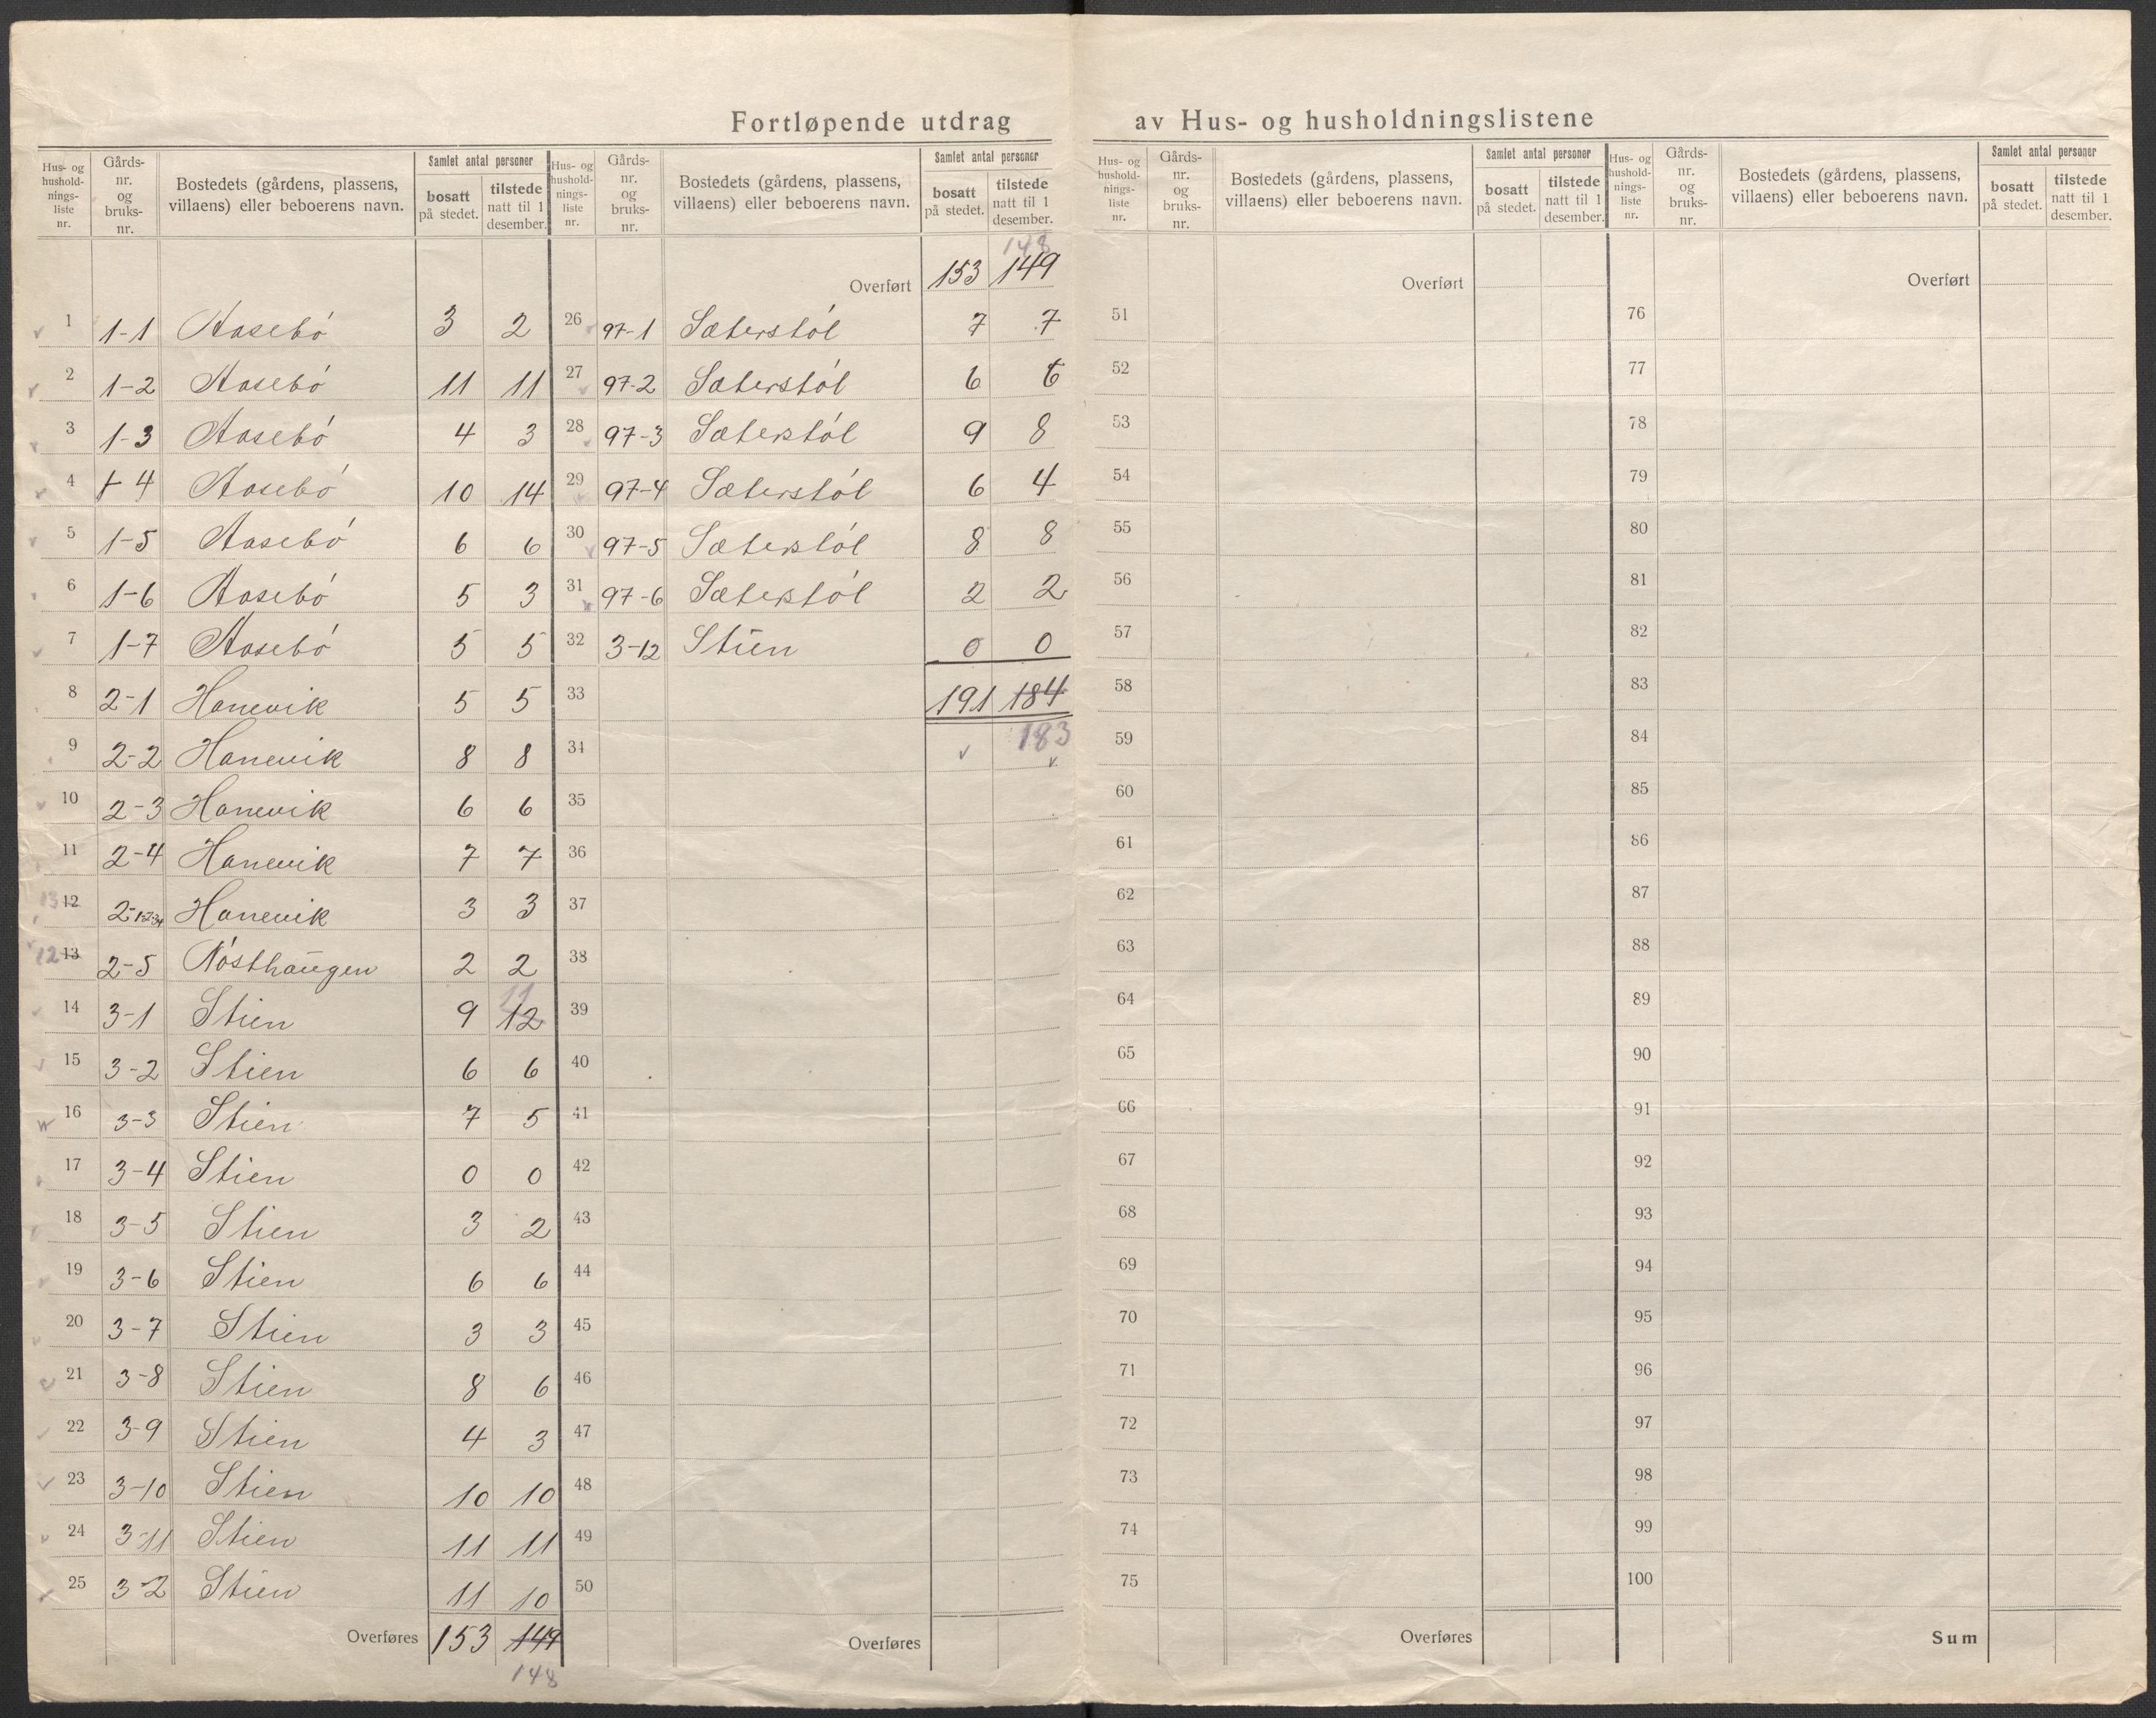 Fortløpende utdrag av Hus- og husholdningslistene
Hus- og husholdnings-liste nr. | Gårds-nr. og bruks-nr. | Bostedets (gårdens, plassens, villaens) eller beboerens navn. | Samlet antal personer | bosatt på stedet. | tilstede natt til 1 desember.
1 1-1 Aasebó 3 2
2 1-2 Aasebó 11 11
3 1-3 Aasebó 4 3
4 1-4 Aasebó 10 14
5 1-5 Aasebó 6 6
6 1-6 Aasebó 5 3
7 1-7 Aasebó 5 5
8 2-1 Hanevik 5 5
9 2-2 Hanevik 8 8
10 2-3 Hanevik 6 6
11 2-4 Hanevik 7 7
13 12 2-1-2-3-4 Hanevik 3 3
12 13 2-5 Nósthaŭgen 2 2
11
14 3-1 Stien 9 12
15 3-2 Stien 6 6
16 3-3 Stien 7 5
17 3-4 Stien 0 0
18 3-5 Stien 3 2
19 3-6 Stien 6 6
20 3-7 Stien 3 3
21 3-8 Stien 8 6
22 3-9 Stien 4 3
23 3-10 Stien 10 10
24 3-11 Stien 11 11
25 3-2 Stien 11 10
Overføres 153 149
148
Hus- og husholdnings-liste nr. | Gårds-nr. og bruks-nr. | Bostedets (gårdens, plassens, villaens) eller beboerens navn. | Samlet antal personer | bosatt på stedet. | tilstede natt til 1 desember.
148
Overført 153 149
26 97-1 Sæterstól 7 7
27 97-2 Sæterstól 6 6
28 97-3 Sæterstól 9 8
29 97-4 Sæterstól 6 4
30 97-5 Sæterstól 8 8
31 97-6 Sæterstól 2 2
32 3-12 Stien 0 0
33 191 184
34 183
35
36
37
38
39
40
41
42
43
44
45
46
47
48
49
50
Overføres
Hus- og husholdnings-liste nr. | Gårds-nr. og bruks-nr. | Bostedets (gårdens, plassens, villaens) eller beboerens navn. | Samlet antal personer | bosatt på stedet. | tilstede natt til 1 desember.
Overført
51
52
53
54
55
56
57
58
59
60
61
62
63
64
65
66
67
68
69
70
71
72
73
74
75
Overføres
Hus- og husholdnings-liste nr. | Gårds-nr. og bruks-nr. | Bostedets (gårdens, plassens, villaens) eller beboerens navn. | Samlet antal personer | bosatt på stedet. | tilstede natt til 1 desember.
Overført
76
77
78
79
80
81
82
83
84
85
86
87
88
89
90
91
92
93
94
95
96
97
98
99
100
Sum